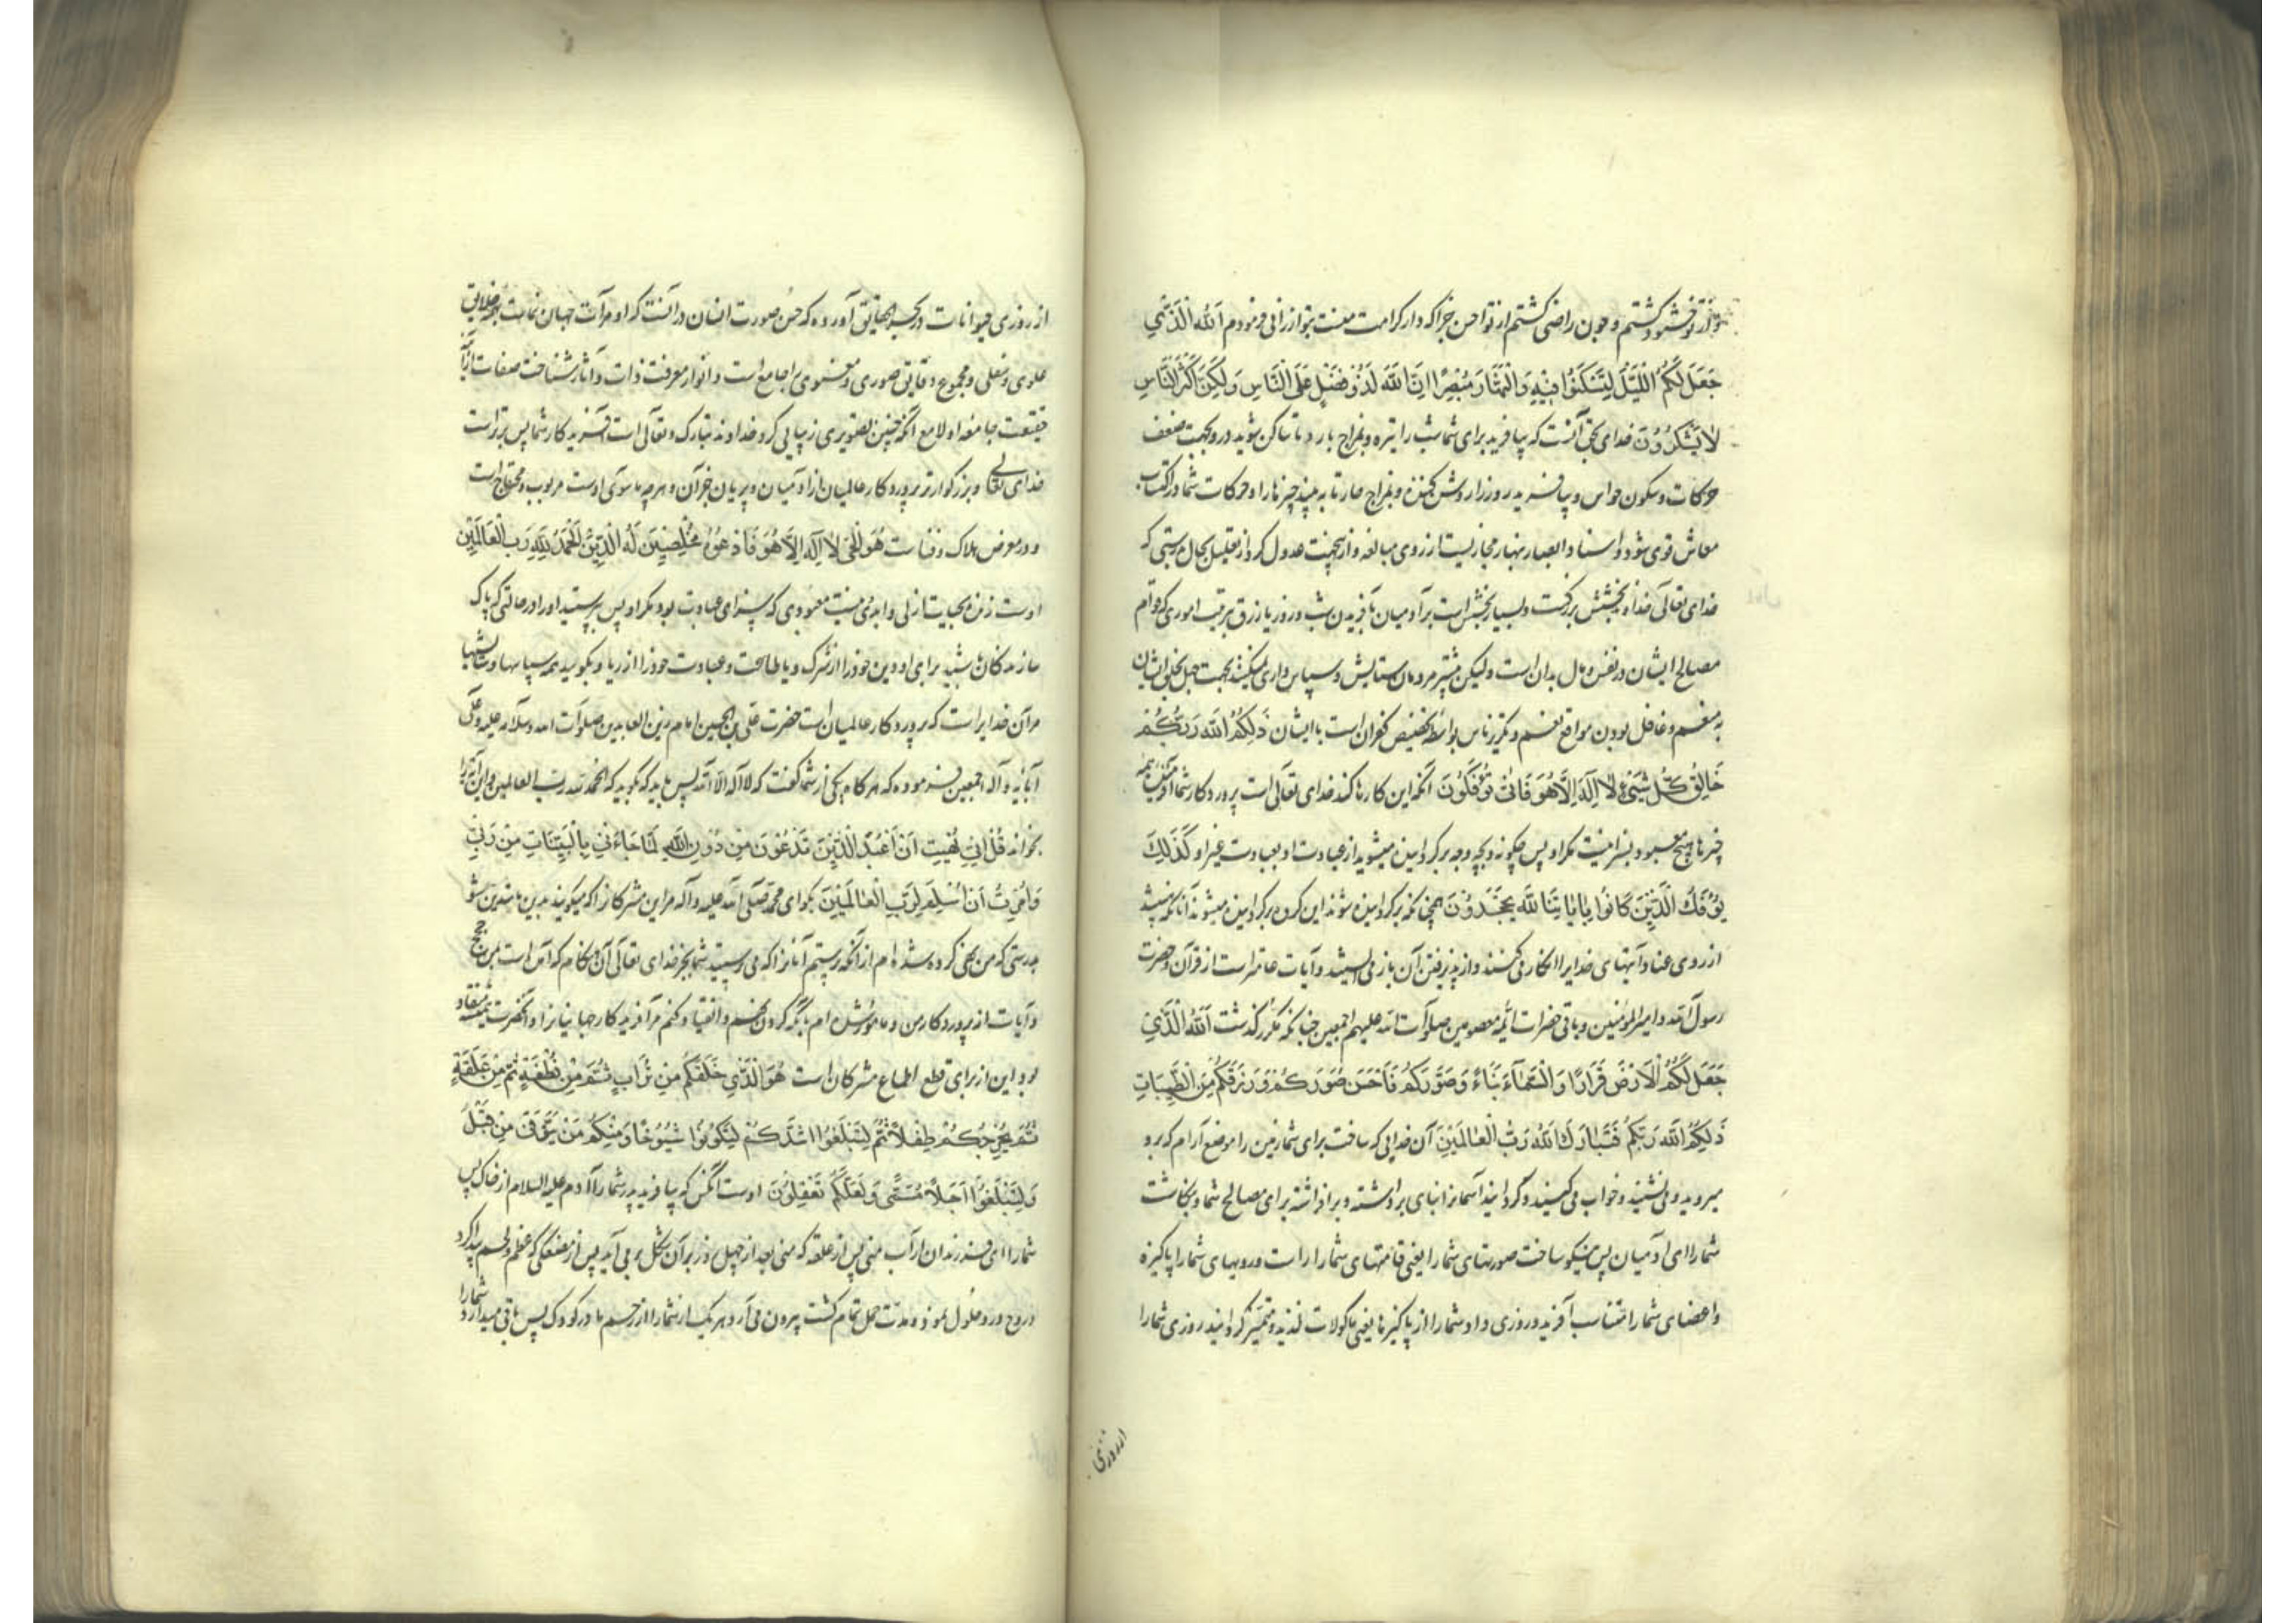 و از تو خشنود گشتم و چون راضی گشتم از تو احسن جزا که دار کرامت منست بتو ارزانی فرمودم اَللهُ الَّذی
جَعَلَ لَکُمُ اللَّیْلَ لِتَسْکُنُوا فِیْهِ وَالنَّهَارَ مُبْصِرًا اِنَّ اللهَ لَذُوْ فَضْلٍ عَلَی النَّاسِ وَلٰکِنَّ اَکْثَرَ النَّاسِ
لَا یَشْکُرُوْنَ خدای بحق آنست که بیافرید برای شما شب را تیره و بمزاج بارد تا ساکن شوید درو بجهت ضعف
حرکات و سکون حواس و بیافرید روز را روشن کننده و بمزاج حار تا به بیند چیزها را و حرکات شما در اکتساب
معاش قوی شود و اسناد ابصار بنهار مجازیست از روی مبالغه و ازیجهت عدول کرد از تعلیل بحال بدرستی که
خدای تعالی خداوند بخشش بزرگست و بسیار بخشش است بر آدمیان بآفریدن شب و روز یا رزق مرتب اموری که قوام
مصالح ایشان در نفس و مال بدان است ولیکن بیشتر مردمان ستایش و سپاس داری نمیکنند بجهت جهل بحق ایشان
به منعم و غافل بودن مواقع نعم و تکریر ناس بواسطه تخصیص کفران است با ایشان ذٰلِکُمُ اللهُ رَبُّکُمْ
خَالِقُ کُلِّ شَیْءٍ لَا اِلٰهَ اِلَّا هُوَ فَاَنّٰی تُؤْفَکُوْنَ آنکه این کارها کند خدای تعالی است پروردگار شما آفریننده همه
چیزها هیچ معبود بسزا نیست مگر او پس چگونه و بچه وجه برگردانیده میشوید از عبادت او بعبادت غیر او کَذٰلِکَ
یُؤْفَکُ الَّذِیْنَ کَانُوا بِاٰیَاتِ اللهِ یَجْحَدُوْنَ همچنانکه برگردانیده شوند این گروه برگردانیده میشوند آنانکه هستند
از روی عناد آیتهای خدایرا انکار می کنند و از پذیرفتن آن باز می ایستند و آیات عامتر است از قرآن و حضرت
رسول الله و امیر المؤمنین و باقی حضرات ائمه معصومین صلوات الله علیهم اجمعین چنانکه مکرر گذشت اَللهُ الَّذِیْ
جَعَلَ لَکُمُ الْاَرْضَ قَرَارًا وَالسَّمَآءَ بِنَاءً وَصَوَّرَکُمْ فَاَحْسَنَ صُوَرَکُمْ وَرَزَقَکُمْ مِنَ الطَّیِّبَاتِ
ذٰلِکُمُ اللهُ رَبُّکُمْ فَتَبَارَکَ اللهُ رَبُّ الْعَالَمِیْنَ آن خدایی که ساخت برای شما زمین را موضع آرام که برو
میروید و می نشینید و خواب می کنید و گردانید آسمانرا بنای برداشته و برافراشته برای مصالح شما و بنگاشت
شما را ای آدمیان پس نیکو ساخت صورتهای شما را یعنی قامتهای شما را راست و رویهای شما را پاکیزه
و اعضای شما را متناسب آفرید و روزی داد شما را از پاکیزها یعنی ماکولات لذیذ و متمیز گردانید روزی شما را
از روزی
از روزی حیوانات در که حسن صورت انسان در آنست که او مرآت جهان نماست بهمه حقایق
علوی و سفلی و مجموع دقایق صوری و معنوی را جامع است و انوار معرفت ذات و آثار شناخت صفات از آن
حقیقت جامعه او لامع آنکه چنین تصویری زیبایی کرد خداوند تبارک و تعالی است آفریدگار شما پس برتر است
خدای تعالی و بزرگوارتر پروردگار عالمیان از آدمیان و پریان جز آن و هرچه ما سوای اوست مربوب و محتاج است
و در معرض هلاک و فناست هُوَ الْحَیُّ لَا اِلٰهَ اِلَّا هُوَ فَادْعُوْهُ مُخْلِصِیْنَ لَهُ الدِّیْنَ اَلْحَمْدُ لِلّٰهِ رَبِّ الْعَالَمِیْنَ
اوست زنده بحیات ازلی و ابدی نیست معبودی که بسزای عبادت بود مگر او پس بپرستید او را در حالتی که پاک
سازندگان باشید برای او دین خود را از شرک و یا طاعت و عبادت خود را از ریا و بگویید همه سپاسها و ستایشها
مرآن خدایراست که پروردگار عالمیان است حضرت علی بن الحسین امام زین العابدین صلوات الله و سلامه علیه و علی
آبائه و آله اجمعین فرموده که هرگاه یکی از شما گفت که لا اله الا الله پس باید که بگوید که الحمد لله رب العالمین و این آیه را
بخواند قُلْ اِنِّی نُهِیْتُ اَنْ اَعْبُدَ الَّذِیْنَ تَدْعُوْنَ مِنْ دُوْنِ اللهِ لَمَّا جَاءَنِیَ الْبَیِّنَاتُ مِنْ رَبِّی
وَاُمِرْتُ اَنْ اُسْلِمَ لِرَبِّ الْعَالَمِیْنَ بگو ای محمد صلی الله علیه و آله مر این مشرکانرا که میگویند بدین ما متدین شو
بدرستی که من نهی کرده شده ام از آنکه پرستم آنانرا که می پرستید شما بجز خدای تعالی آن هنگام که آمد است بمن حجج
و آیات از پروردگار من و مامور شده ام بآنکه گردن نهم و انقیاد کنم مر آفریدگار جهانیانرا و آنحضرت همیشه منقاد
بود و این از برای قطع اطماع مشرکان است هُوَ الَّذِیْ خَلَقَکُمْ مِنْ تُرَابٍ ثُمَّ مِنْ نُطْفَةٍ ثُمَّ مِنْ عَلَقَةٍ
ثُمَّ یُخْرِجُکُمْ طِفْلًا ثُمَّ لِتَبْلُغُوا اَشُدَّکُمْ ثُمَّ لِتَکُوْنُوا شُیُوْخًا وَمِنْکُمْ مَنْ یُتَوَفّٰی مِنْ قَبْلُ
وَلِتَبْلُغُوا اَجَلًا مُسَمًّی وَلَعَلَّکُمْ تَعْقِلُوْنَ اوست آنکس که بیافرید پدر شما را آدم علیه السلام از خاک پس
شما را ای فرزندان او از آب منی پس از علقه که منی بعد از چهل روز بر آن شکل بر می آید پس از مضغگی که عظم و لحم پیدا کرد
و روح درو حلول نمود و مدت حمل تمام گشت بیرون می آرد هر یک از شما را از رحم مادر کودک پس باقی میدارد شما را